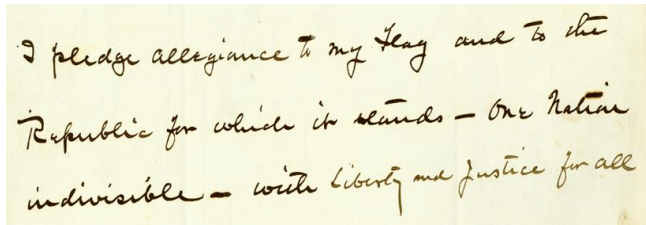 I pledge allegiance to my Flag and to the
Republic for which it stands – One Nation
indivisible – with Liberty and Justice for all